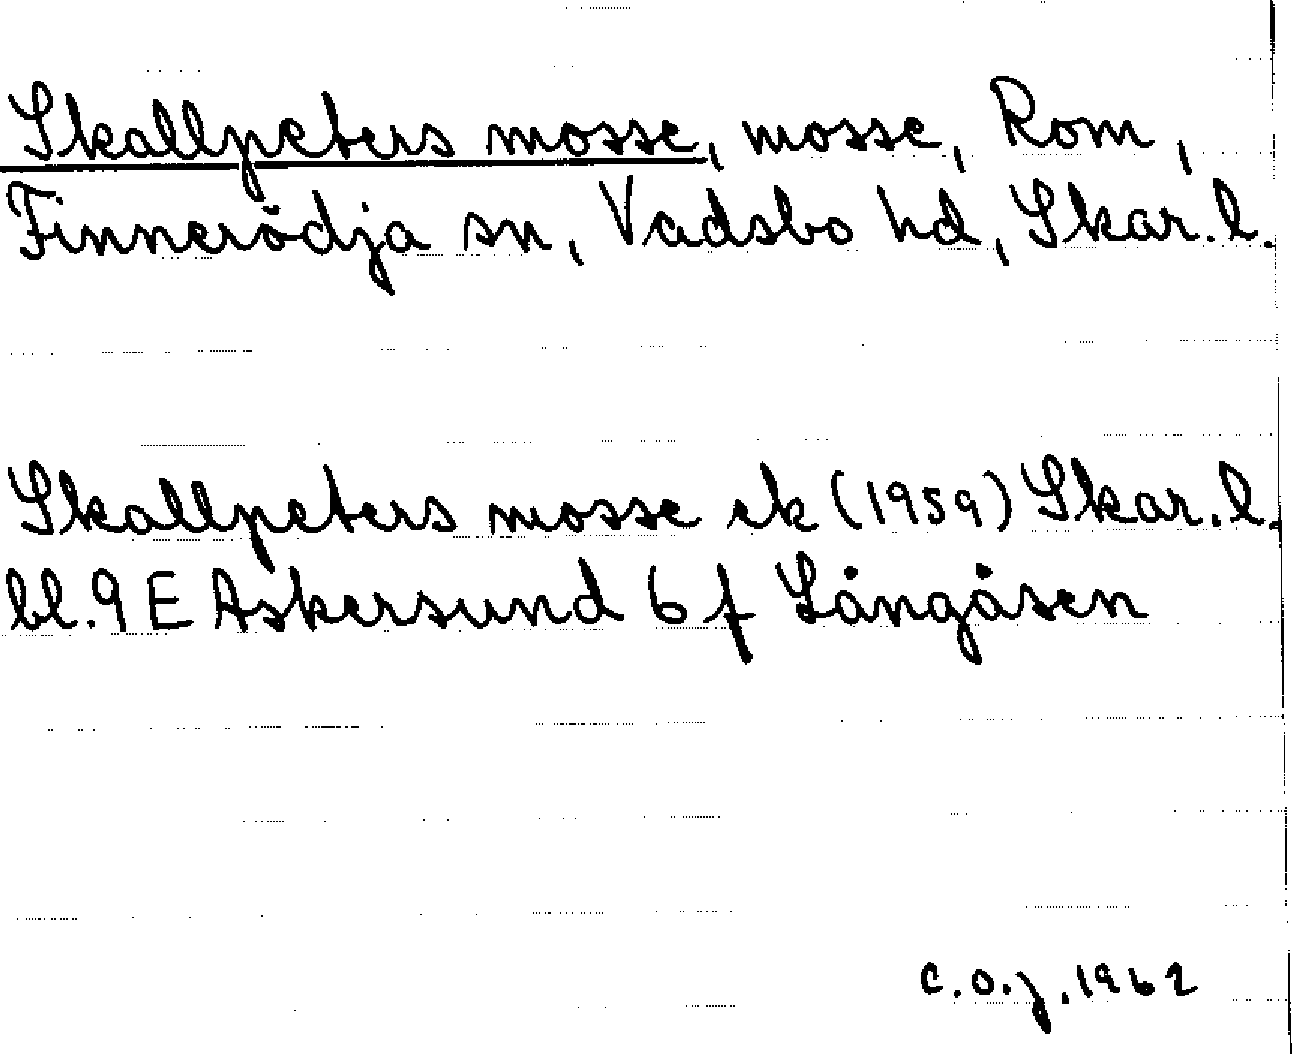 Skallpeters mosse, mosse, Rom,
Finnerödja sn, Vadsbo hd, Skar. l.
Skallpeters mosse ek (1959) Skar. l.
bl. 9 E Askersund 6 f Långåsen
C.O.J. 1962